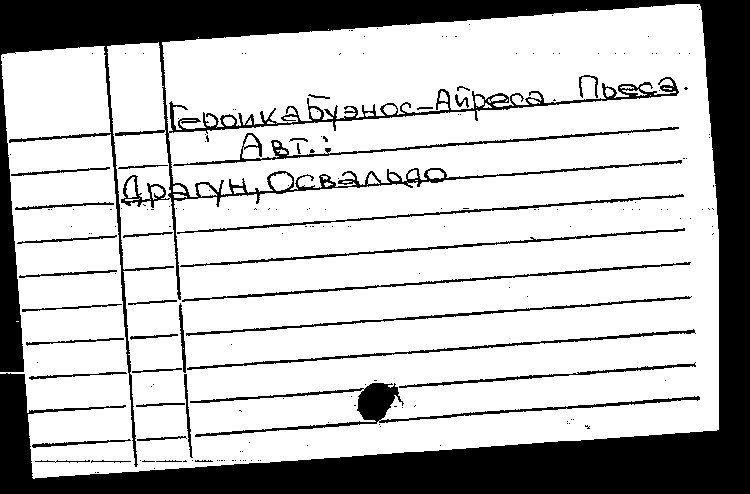 Героика Буэнос-Айреса. Пьеса.
Авт.:
Драгун, Освальдо